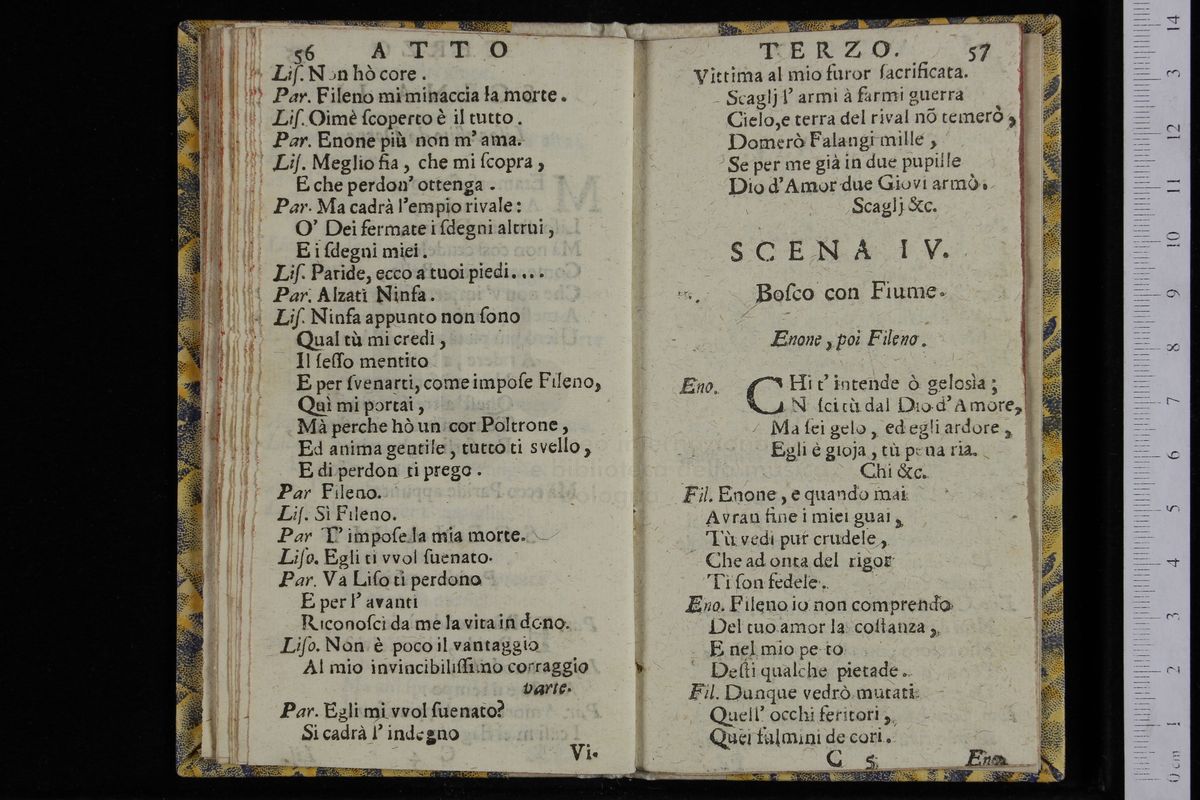 56 ATTO
Liſ. Non hò core.
Par. Fileno mi minaccia la morte.
Liſ. Oimè ſcoperto è il tutto.
Par. Enone più non m' ama.
Liſ. Meglio fia, che mi ſcopra,
E che perdon' ottenga.
Par. Ma cadrà l'empio rivale:
O' Dei fermate i ſdegni altrui,
E i ſdegni miei.
Liſ. Paride, ecco a tuoi piedi....
Par. Alzati Ninfa.
Liſ. Ninfa appunto non ſono
Qual tù mi credi,
Il ſeſſo mentito
E per ſvenarti, come impoſe Fileno,
Quì mi portai,
Mà perche hò un cor Poltrone,
Ed anima gentile, tutto ti svello,
E di perdon ti prego.
Par Fileno.
Liſ. Sì Fileno.
Par T' impoſe la mia morte.
Liſo. Egli ti vvol ſuenato.
Par. Va Liſo ti perdono
E per l' avanti
Riconoſci da me la vita in dono.
Liſo. Non è poco il vantaggio
Al mio invincibiliſſimo corraggio
parte.
Par. Egli mi vvol ſuenato?
Si cadrà l' indegno
Vi-
TERZO. 57
Vittima al mio furor ſacrificata.
Scaglj l' armi à farmi guerra
Cielo, e terra del rival nõ temerò,
Domerò Falangi mille,
Se per me già in due pupille
Dio d'Amor due Giovi armò.
Scaglj &c.
SCENA IV.
Boſco con Fiume.
Enone, poi Fileno.
Eno. CHi t' intende ò gelosìa;
N ſci tù dal Dio d'Amore,
Ma ſei gelo, ed egli ardore,
Egli è gioja, tù pena ria.
Chi &c.
Fil. Enone, e quando mai
Avran fine i miei guai,
Tù vedi pur crudele,
Che ad onta del rigor
Ti ſon fedele.
Eno. Fileno io non comprendo
Del tuo amor la coſtanza,
E nel mio pe to
Deſti qualche pietade.
Fil. Dunque vedrò mutati
Quell' occhi feritori,
Quei fulmini de cori.
C 5 Eno.